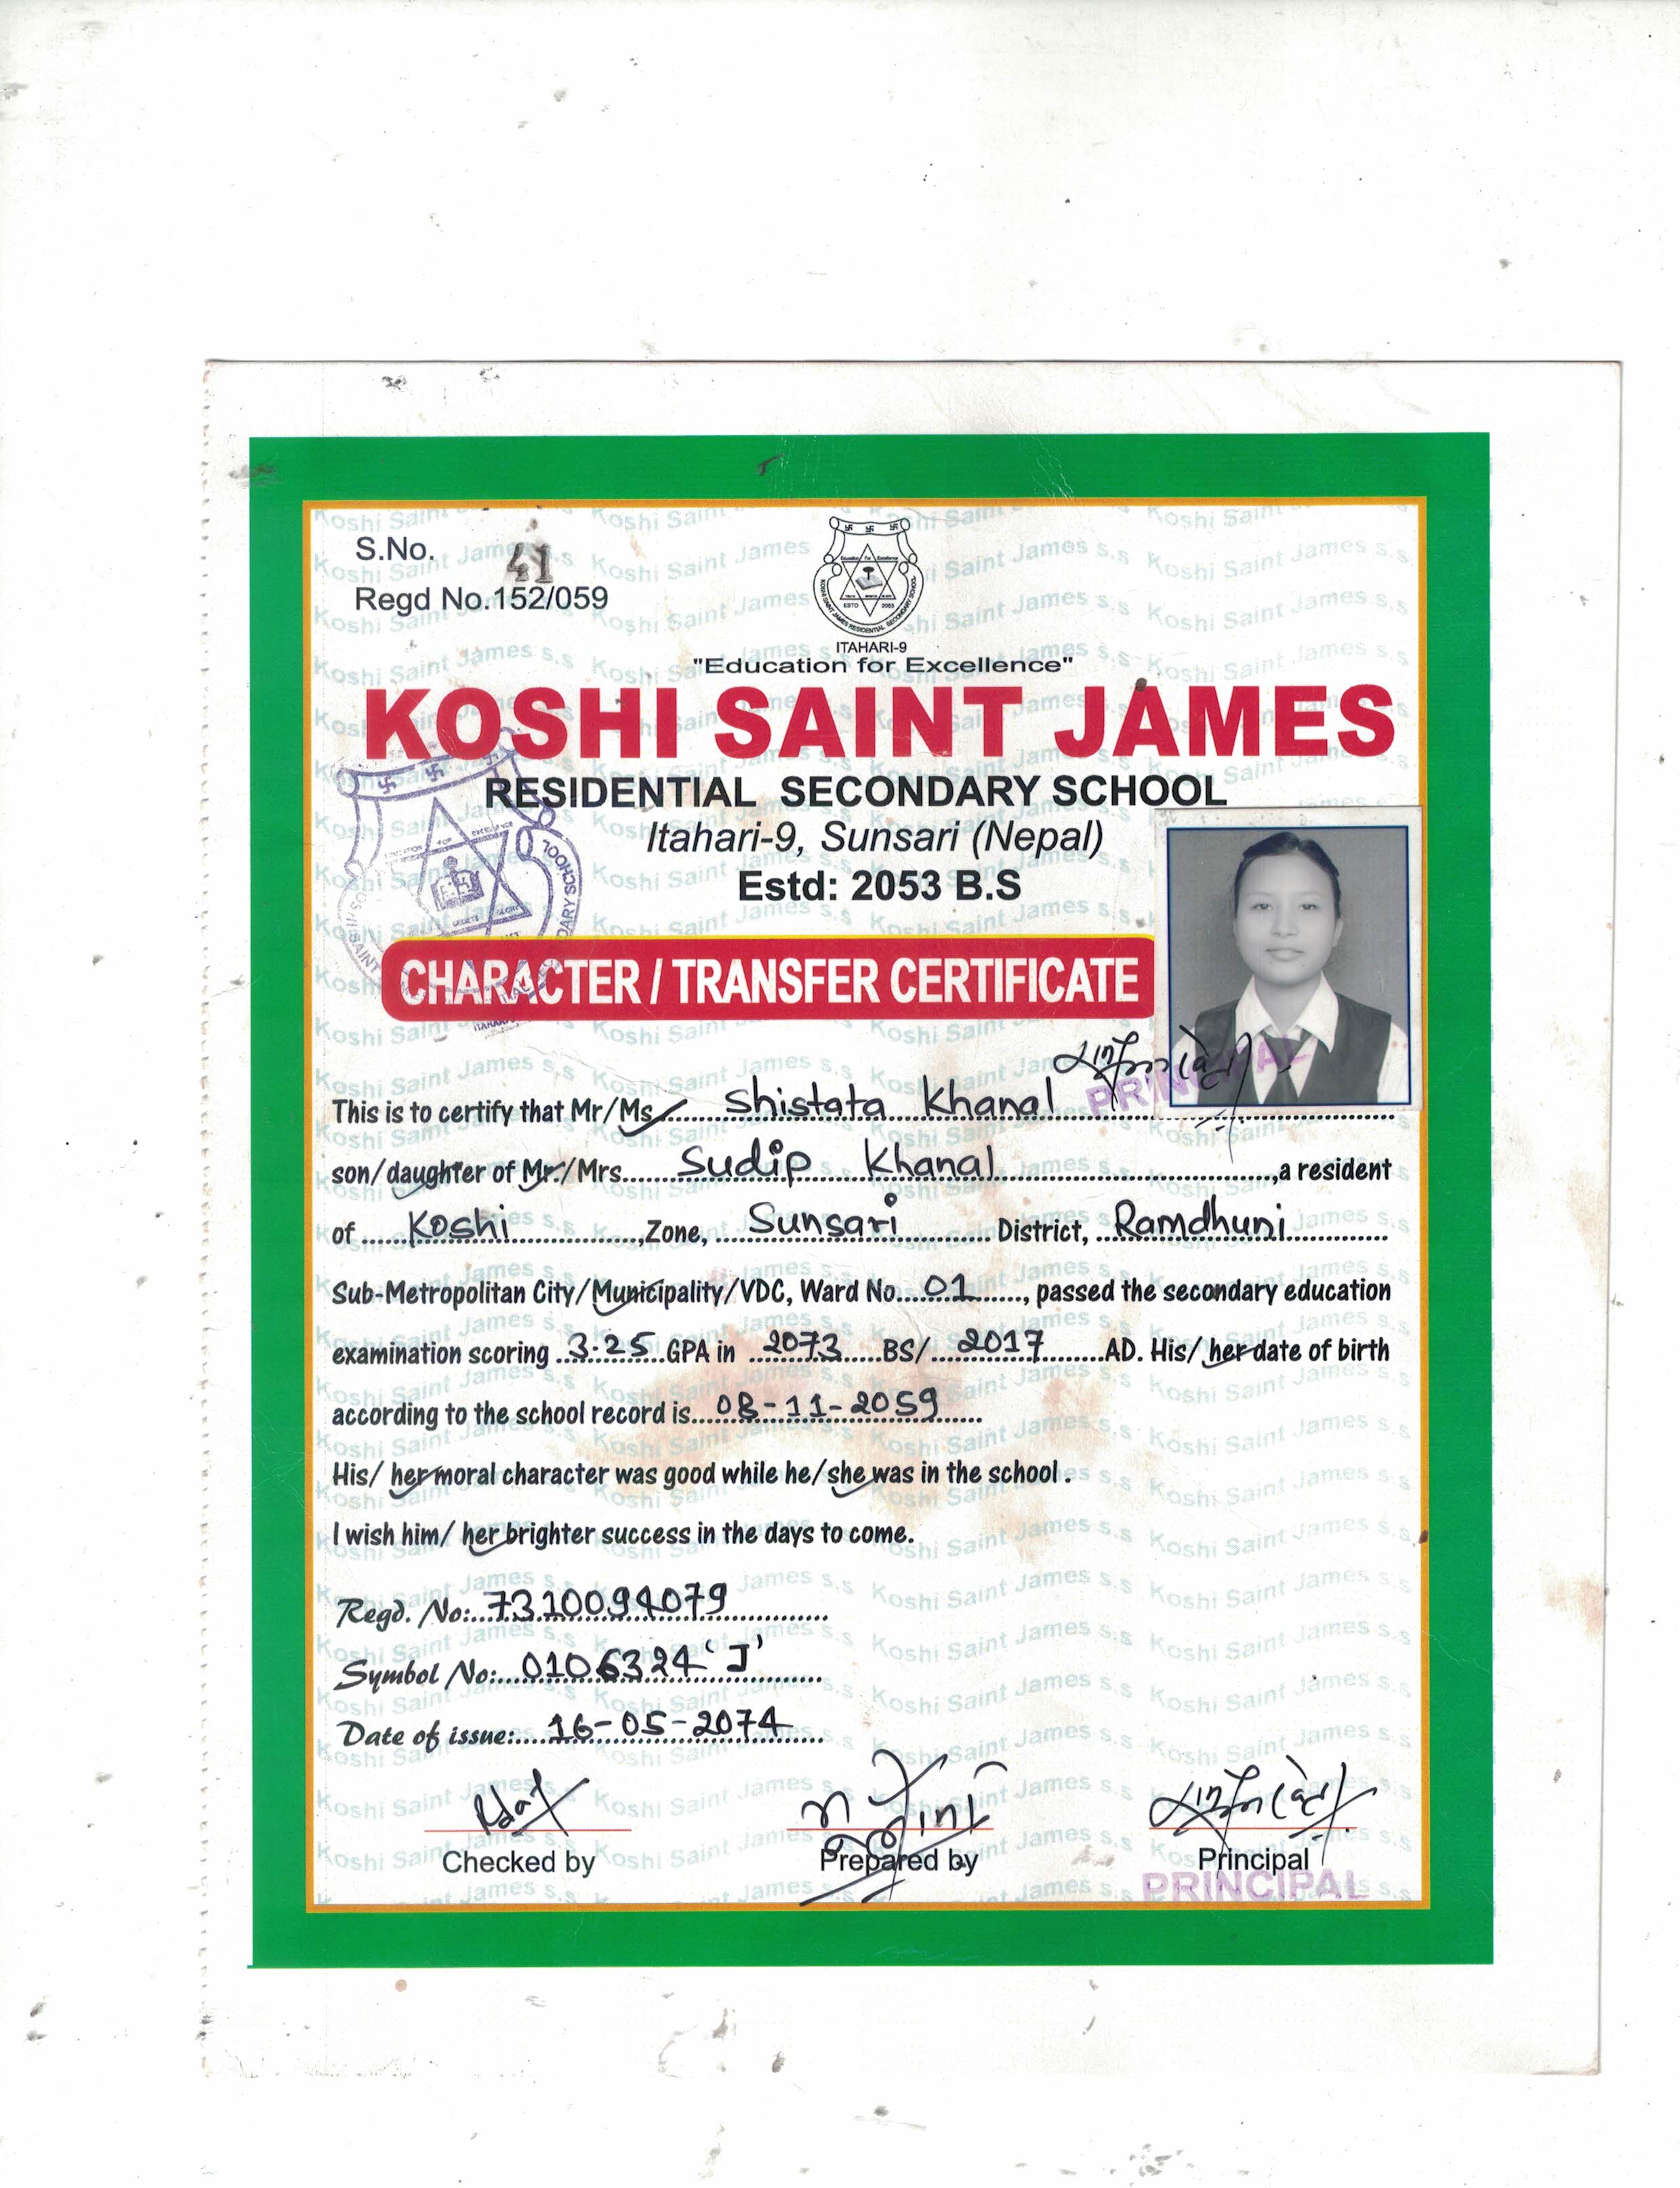 S.No. 41
Regd No.152/059
ITAHARI-9
"Education for Excellence"
KOSHI SAINT JAMES
RESIDENTIAL SECONDARY SCHOOL
Itahari-9, Sunsari (Nepal)
Estd: 2053 B.S
CHARACTER / TRANSFER CERTIFICATE
PRINCIPAL
This is to certify that Mr/Ms Shistata Khanal
son/daughter of Mr./Mrs. Sudip Khanal, a resident
of Koshi, Zone, Sunsari District, Ramdhuni
Sub-Metropolitan City/Municipality/VDC, Ward No. 01, passed the secondary education
examination scoring 3.25 GPA in 2073 BS/ 2017 AD. His/ her date of birth
according to the school record is 08-11-2059
His/ her moral character was good while he/she was in the school.
I wish him/ her brighter success in the days to come.
Regd. No: 7310094079
Symbol No: 0106324 'J'
Date of issue: 16-05-2074
Checked by Prepared by Principal
PRINCIPAL